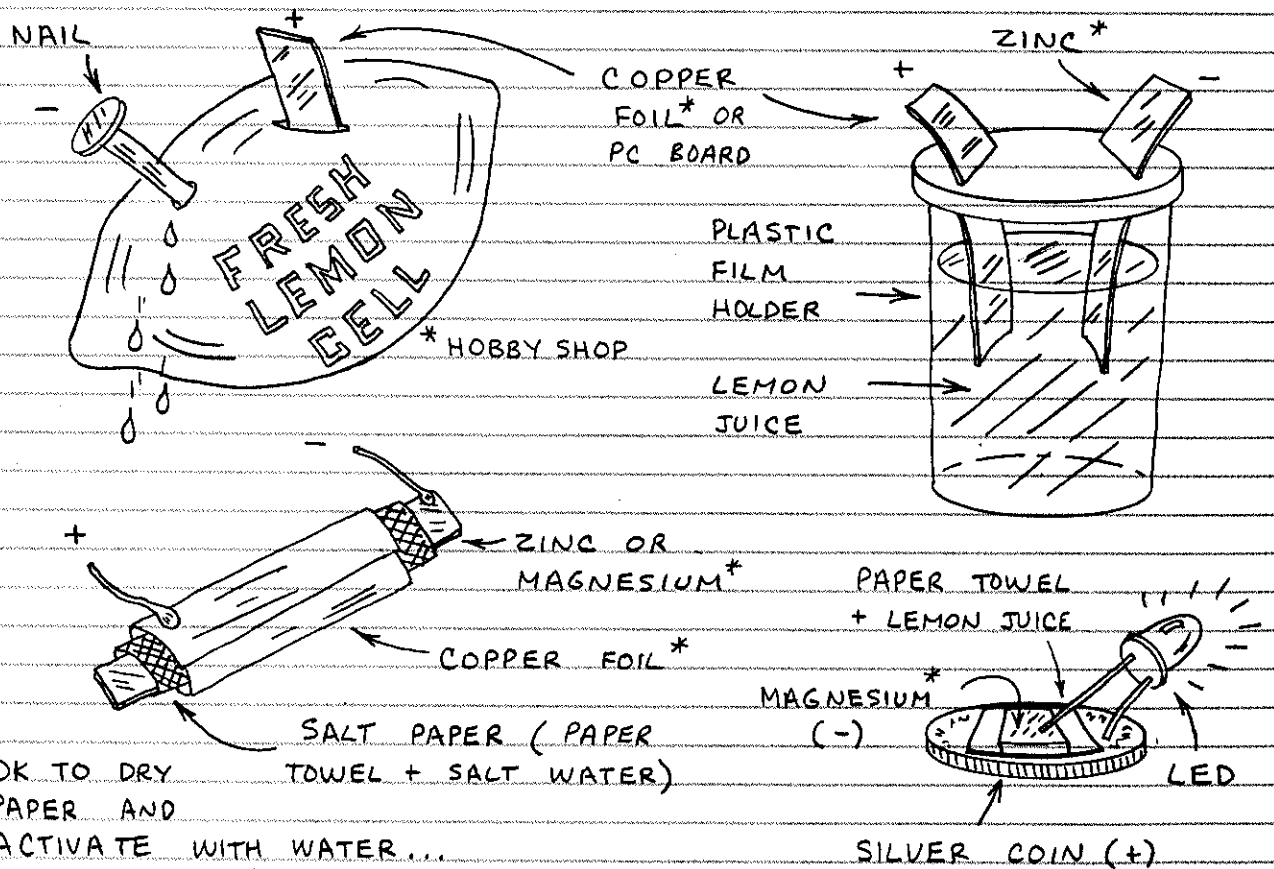 NAIL
−
+
COPPER
FOIL* OR
PC BOARD
FRESH
LEMON
CELL
* HOBBY SHOP
ZINC*
+
−
PLASTIC
FILM
HOLDER
LEMON
JUICE
−
+
ZINC OR
MAGNESIUM*
COPPER FOIL*
SALT PAPER (PAPER
TOWEL + SALT WATER)
OK TO DRY
PAPER AND
ACTIVATE WITH WATER...
PAPER TOWEL
+ LEMON JUICE
MAGNESIUM*
(−)
LED
SILVER COIN (+)